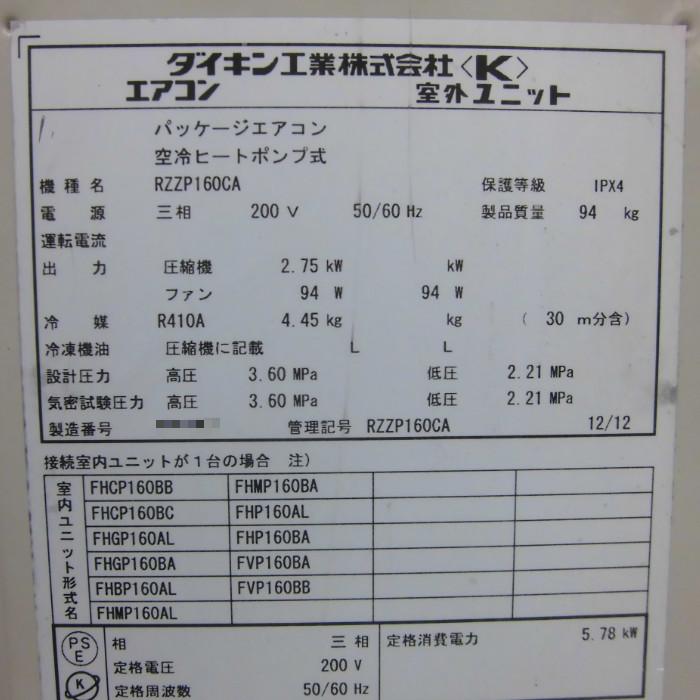 ダイキン工業株式会社〈K〉
エアコン 室外ユニット
パッケージエアコン
空冷ヒートポンプ式
機種名 RZZP160CA 保護等級 IPX4
電源 三相 200 V 50/60 Hz 製品質量 94 kg
運転電流
出力 圧縮機 2.75 kW kW
ファン 94 W 94 W
冷媒 R410A 4.45 kg kg ( 30 m分含)
冷凍機油 圧縮機に記載 L L
設計圧力 高圧 3.60 MPa 低圧 2.21 MPa
気密試験圧力 高圧 3.60 MPa 低圧 2.21 MPa
製造番号 管理記号 RZZP160CA 12/12
接続室内ユニットが1台の場合 注)
室内ユニット形式名
FHCP160BB FHMP160BA
FHCP160BC FHP160AL
FHGP160AL FHP160BA
FHGP160BA FVP160BA
FHBP160AL FVP160BB
FHMP160AL
PSE 相 三相 定格消費電力 5.78 kW
定格電圧 200 V
K 定格周波数 50/60 Hz